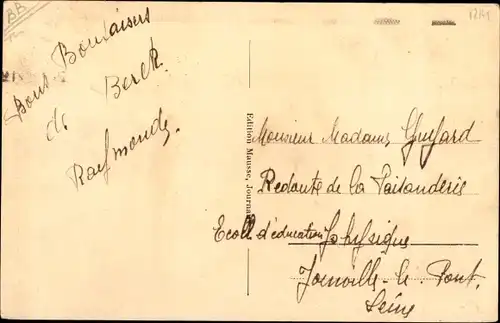 Bons Baisers
de Berck.
Raymonde.
Edition Mausse, Journaux
Monsieur Madame Guyard
Redoute de la Faisanderie
Ecole d'éducation physique
Joinville-le-Pont.
Seine